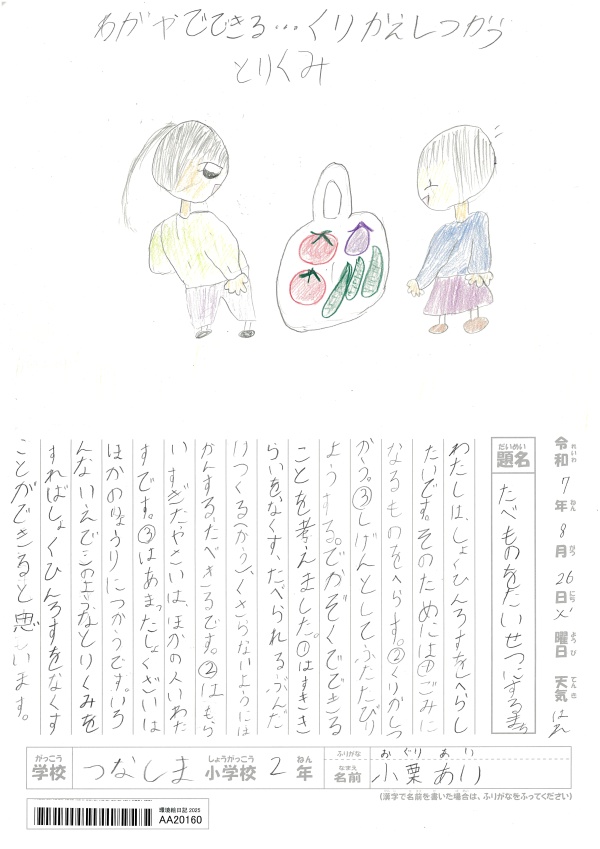 わがやでできる…くりかえしつかう
とりくみ
令和7年8月26日火曜日 天気はれ
れいわ ねん がつ にち ようび てんき
だいめい
題名 たべものをたいせつにするまち
わたしは、しょくひんろすをへらし
たいです。そのためには①ごみに
なるものをへらす。②くりかしつ
かう。③しげんとしてふたたびり
ようする。でかぞくでできる
ことを考えました。①はすききき
らいをなくす、たべられるぶんだ
けつくる(かう)、くさらないようにほ
かんする、たべきるです。②はもら
いすぎたやさいは、ほかの人いわた
すです。③はあまったしょくざいは
ほかのりょうりにつかうです。いろ
んないえでこのようなとりくみを
すればしょくひんろすをなくす
ことができると思います。
がっこう しょうがっこう ねん
学校 つなしま小学校 2年
ふりがな おぐり あい
なまえ
名前 小栗 あい
(漢字で名前を書いた場合は、ふりがなをふってください)
環境絵日記 2025
AA20160